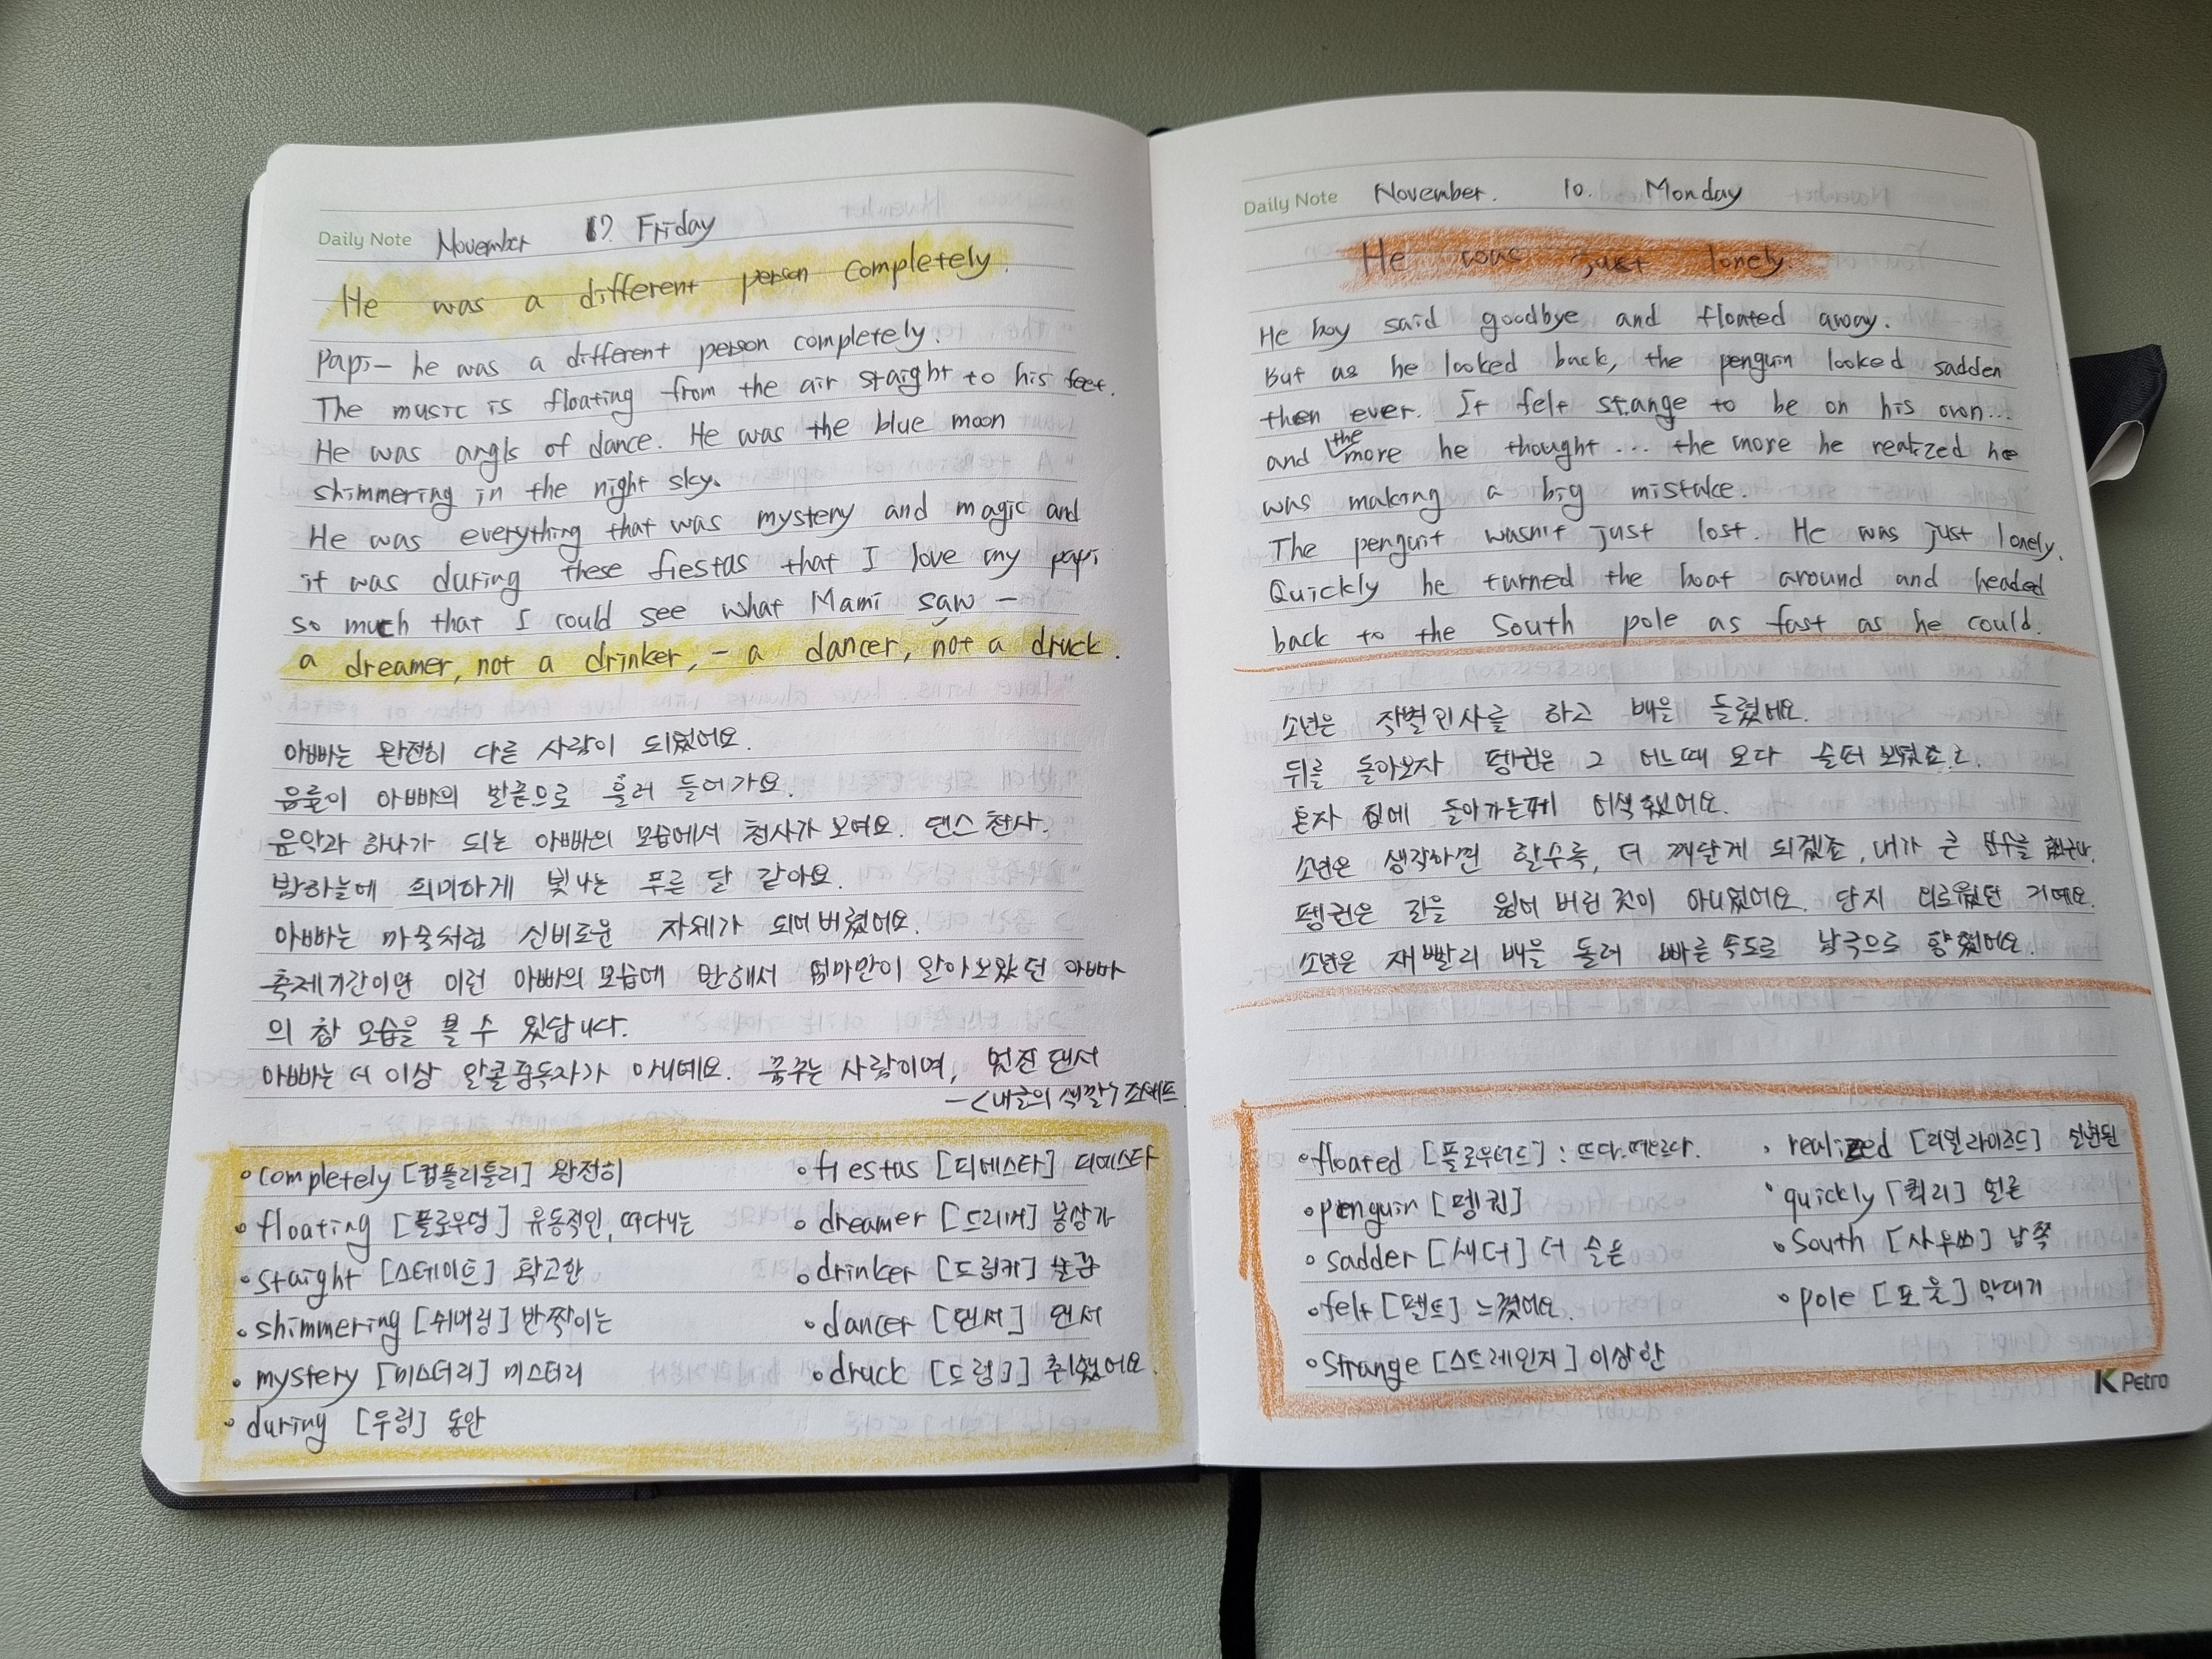 Daily Note November 17. Friday
He was a different person completely.
Papi- he was a different person completely.
The music is floating from the air staight to his feet.
He was angls of dance. He was the blue moon
shimmering in the night sky.
He was everything that was mystery and magic and
it was during these fiestas that I love my papi
so much that I could see what Mami saw -
a dreamer, not a drinker, - a dancer, not a druck.
아빠는 완전히 다른 사람이 되었어요.
음률이 아빠의 발끝으로 흘러 들어가요.
음악과 하나가 되는 아빠의 모습에서 천사가 보여요. 댄스 천사.
밤하늘에 희미하게 빛나는 푸른 달 같아요.
아빠는 마술처럼 신비로운 자체가 되어버렸어요.
축제기간이면 이런 아빠의 모습에 반해서 엄마만이 알아보았던 아빠
의 참 모습을 볼 수 있답니다.
아빠는 더 이상 알콜중독자가 아니예요. 꿈꾸는 사람이며, 멋진 댄서
-<내 색깔>
• completely [컴플리틀리] 완전히
• floating [플로우팅] 유동적인, 떠다니는
• staight [스테이트] 확고한
• shimmering [쉬머링] 반짝이는
• mystery [미스터리] 미스터리
• during [두링] 동안
• fiestas [피에스타] 피에스타
• dreamer [드리머] 몽상가
• drinker [드링커] 술꾼
• dancer [댄서] 댄서
• druck [드렁크] 취했어요.
Daily Note November. 10. Monday
He was just lonely.
He boy said goodbye and floated away.
But as he looked back, the penguin looked sadden
then ever. It felt stange to be on his own...
and the more he thought ... the more he realized he
was making a big mistake.
The penguit wasn't just lost. He was just lonely.
Quickly he turned the boat around and headed
back to the South pole as fast as he could.
소년은 작별인사를 하고 배을 돌렸어요.
뒤를 돌아보자 펭귄은 그 어느때 보다 슬퍼 보였죠.
혼자 집에 돌아가는게 어색했어요.
소년은 생각하면 할수록, 더 깨닫게 되겠죠, 내가 큰 실수를 했구나.
펭귄은 길을 잃어 버린 것이 아니었어요. 단지 외로웠던 거예요.
소년은 재빨리 배을 돌려 빠른 속도로 남극으로 향했어요.
• floated [플로우티드] : 뜨다. 떠오르다.
• penguin [펭귄]
• sadder [새더] 더 슬픈
• felt [펠트] 느꼈어요.
• strange [스트레인지] 이상한
• realized [리얼라이즈드] 실현된
• quickly [퀵리] 얼른
• South [사우쓰] 남쪽
• pole [포울] 막대기
K Petro